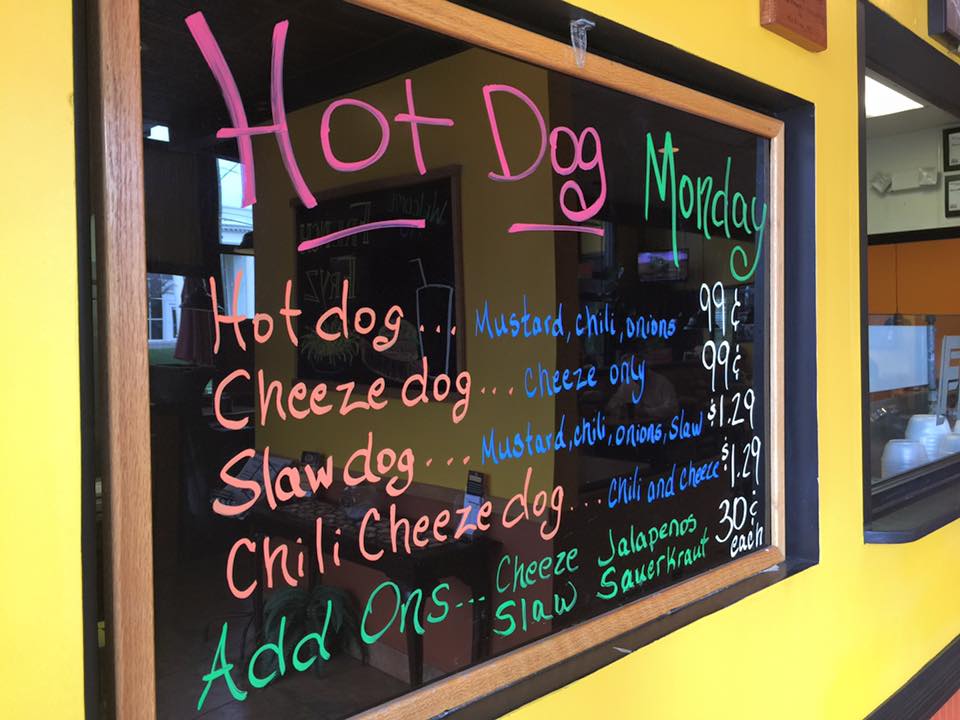 Hot Dog Monday
Hot dog... Mustard, chili, onions 99¢
Cheeze dog... Cheeze only 99¢
Slaw dog... Mustard, chili, onions, slaw $1.29
Chili Cheeze dog... Chili and cheeze $1.29
Add Ons... Cheeze Jalapenos 30¢
Slaw Sauerkraut each